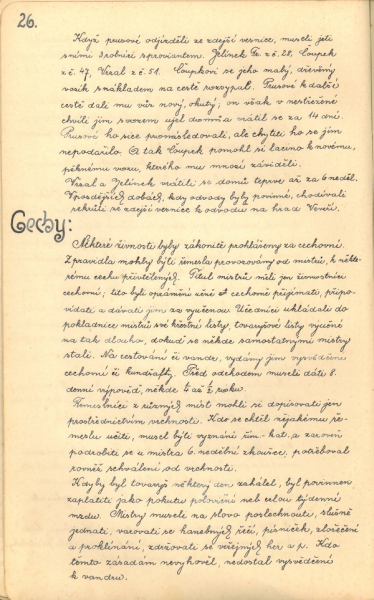 26.
Když prusové odjížděli ze zdejší vesnice, museli jeti
s nimi 3 rolníci s proviantem. Jelínek Fr. z č. 28, Coupek
z č. 47, Vizal z č. 51. Coupkovi se jeho malý, dřevěný
vozík s nákladem na cestě rozsypal. Prusové k další
cestě dali mu vůz nový, okutý, on však v nestřežené
chvíli jim s vozem ujel domů a vrátil se za 14 dní.
Prusové ho sice pronásledovali, ale chytiti ho se jim
nepodařilo. A tak Coupek pomohl si lacino k novému,
pěknému vozu, kterého mu mnozí záviděli.
Vizal a Jelínek vrátili se domů teprve až za 6 neděl.
V pozdějších dobách, kdy odvody byly povinné, chodívali
rekruti ze zdejší vesnice k odvodu na hrad Veveří.
Cechy:
Některé živnosti byly zákonitě prohlášeny za cechovní.
Z pravidla mohly býti řemesla provozovány od mistrů, k někte-
rému cechu přivtělených. Titul mistrů měli jen živnostníci
cechovní; tito byli oprávněni učně cechovně přijímati, připo-
vídati a dávati jim za vyučenou. Učedníci ukládali do
pokladnice mistrů své křestní listy, tovaryšové listy výučné
na tak dlouho, dokud se někde samostatnými mistry
stali. Na cestování či vandr, vydány jim vysvědčení
cechovní či kundšafty. Před odchodem museli dáti 8
denní výpověď, někde ¼ až ½ roku.
Řemeslníci z různých míst mohli si dopisovati jen
prostřednictvím vrchnosti. Kdo se chtěl nějakému ře-
meslu učiti, musel býti vyznání řím.-kat. a zároveň
podrobiti se u mistra 6. nedělní zkoušce, potřeboval
rovněž schválení od vrchnosti.
Kdyby byl tovaryš některý den zahálel, byl povinnen
zaplatiti jako pokutu poloviční neb celou týdenní
mzdu. Mistry museli na slovo poslechnouti, slušně
jednati, varovati se hanebných řečí, písniček, zlořečení
a proklínání, zdržovati se veřejných her a p. Kdo
těmto zásadám nevyhověl, nedostal vysvědčení
k vandru.